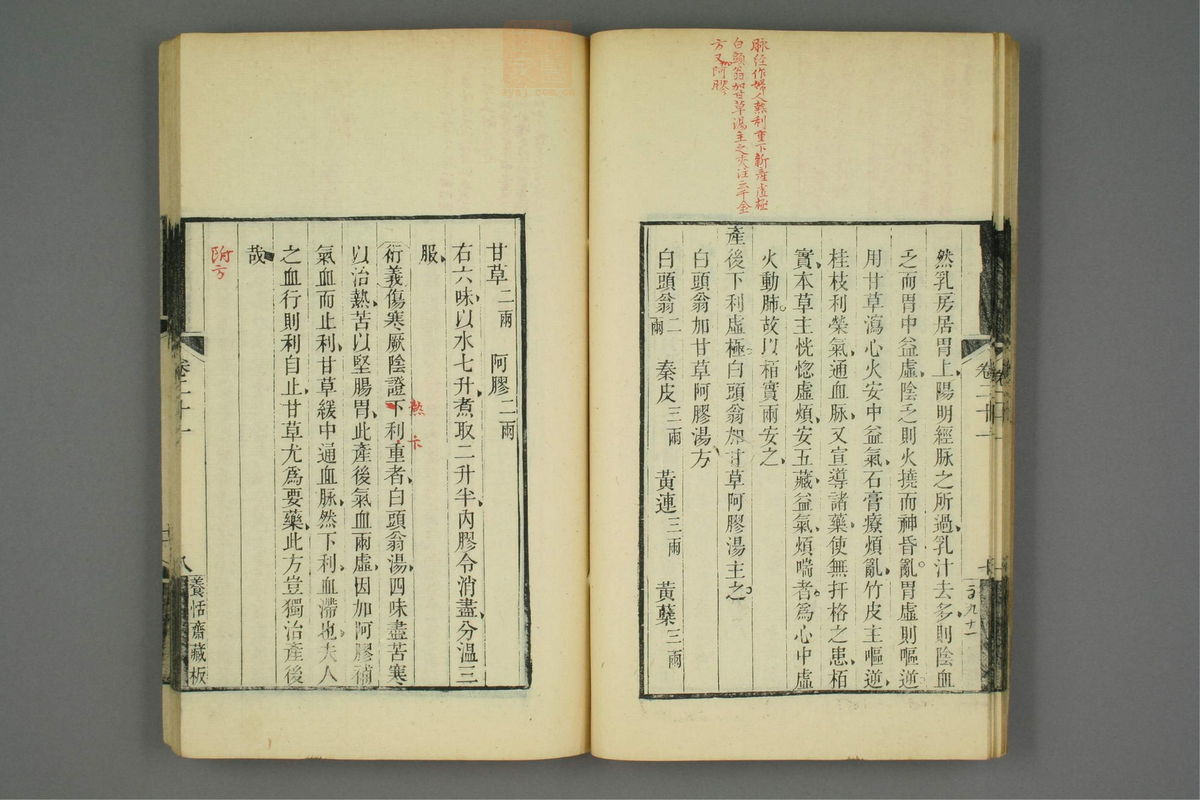 脉经作婦人熱利重下新產虛極
白頭翁加甘草湯主之夾注云千金
方又加阿膠
然乳房居胃上陽明經脉之所過乳汁去多則陰血
乏而胃中益虛陰乏則火撓而神昏亂胃虛則嘔逆
用甘草瀉心火安中益氣石膏療煩亂竹皮主嘔逆
桂枝利榮氣通血脉又宣導諸藥使無扞格之患栢
實本草主恍惚虛煩安五藏益氣煩喘者爲心中虛
火動肺故以栢實兩安之
產後下利虛極白頭翁加甘草阿膠湯主之
白頭翁加甘草阿膠湯方
白頭翁二兩 秦皮三兩 黃連三兩 黃蘗三兩
卷二十一
甘草二兩 阿膠二兩
右六味以水七升煮取二升半內膠令消盡分溫三
服
衍義傷寒厥陰證下利重者白頭翁湯四味盡苦寒
熱
以治熱苦以堅腸胃此產後氣血兩虛因加阿膠補
氣血而止利甘草緩中通血脉然下利血滯也夫人
之血行則利自止甘草尤爲要藥此方豈獨治產後
哉
附方
卷二十一
八
養恬齋藏板